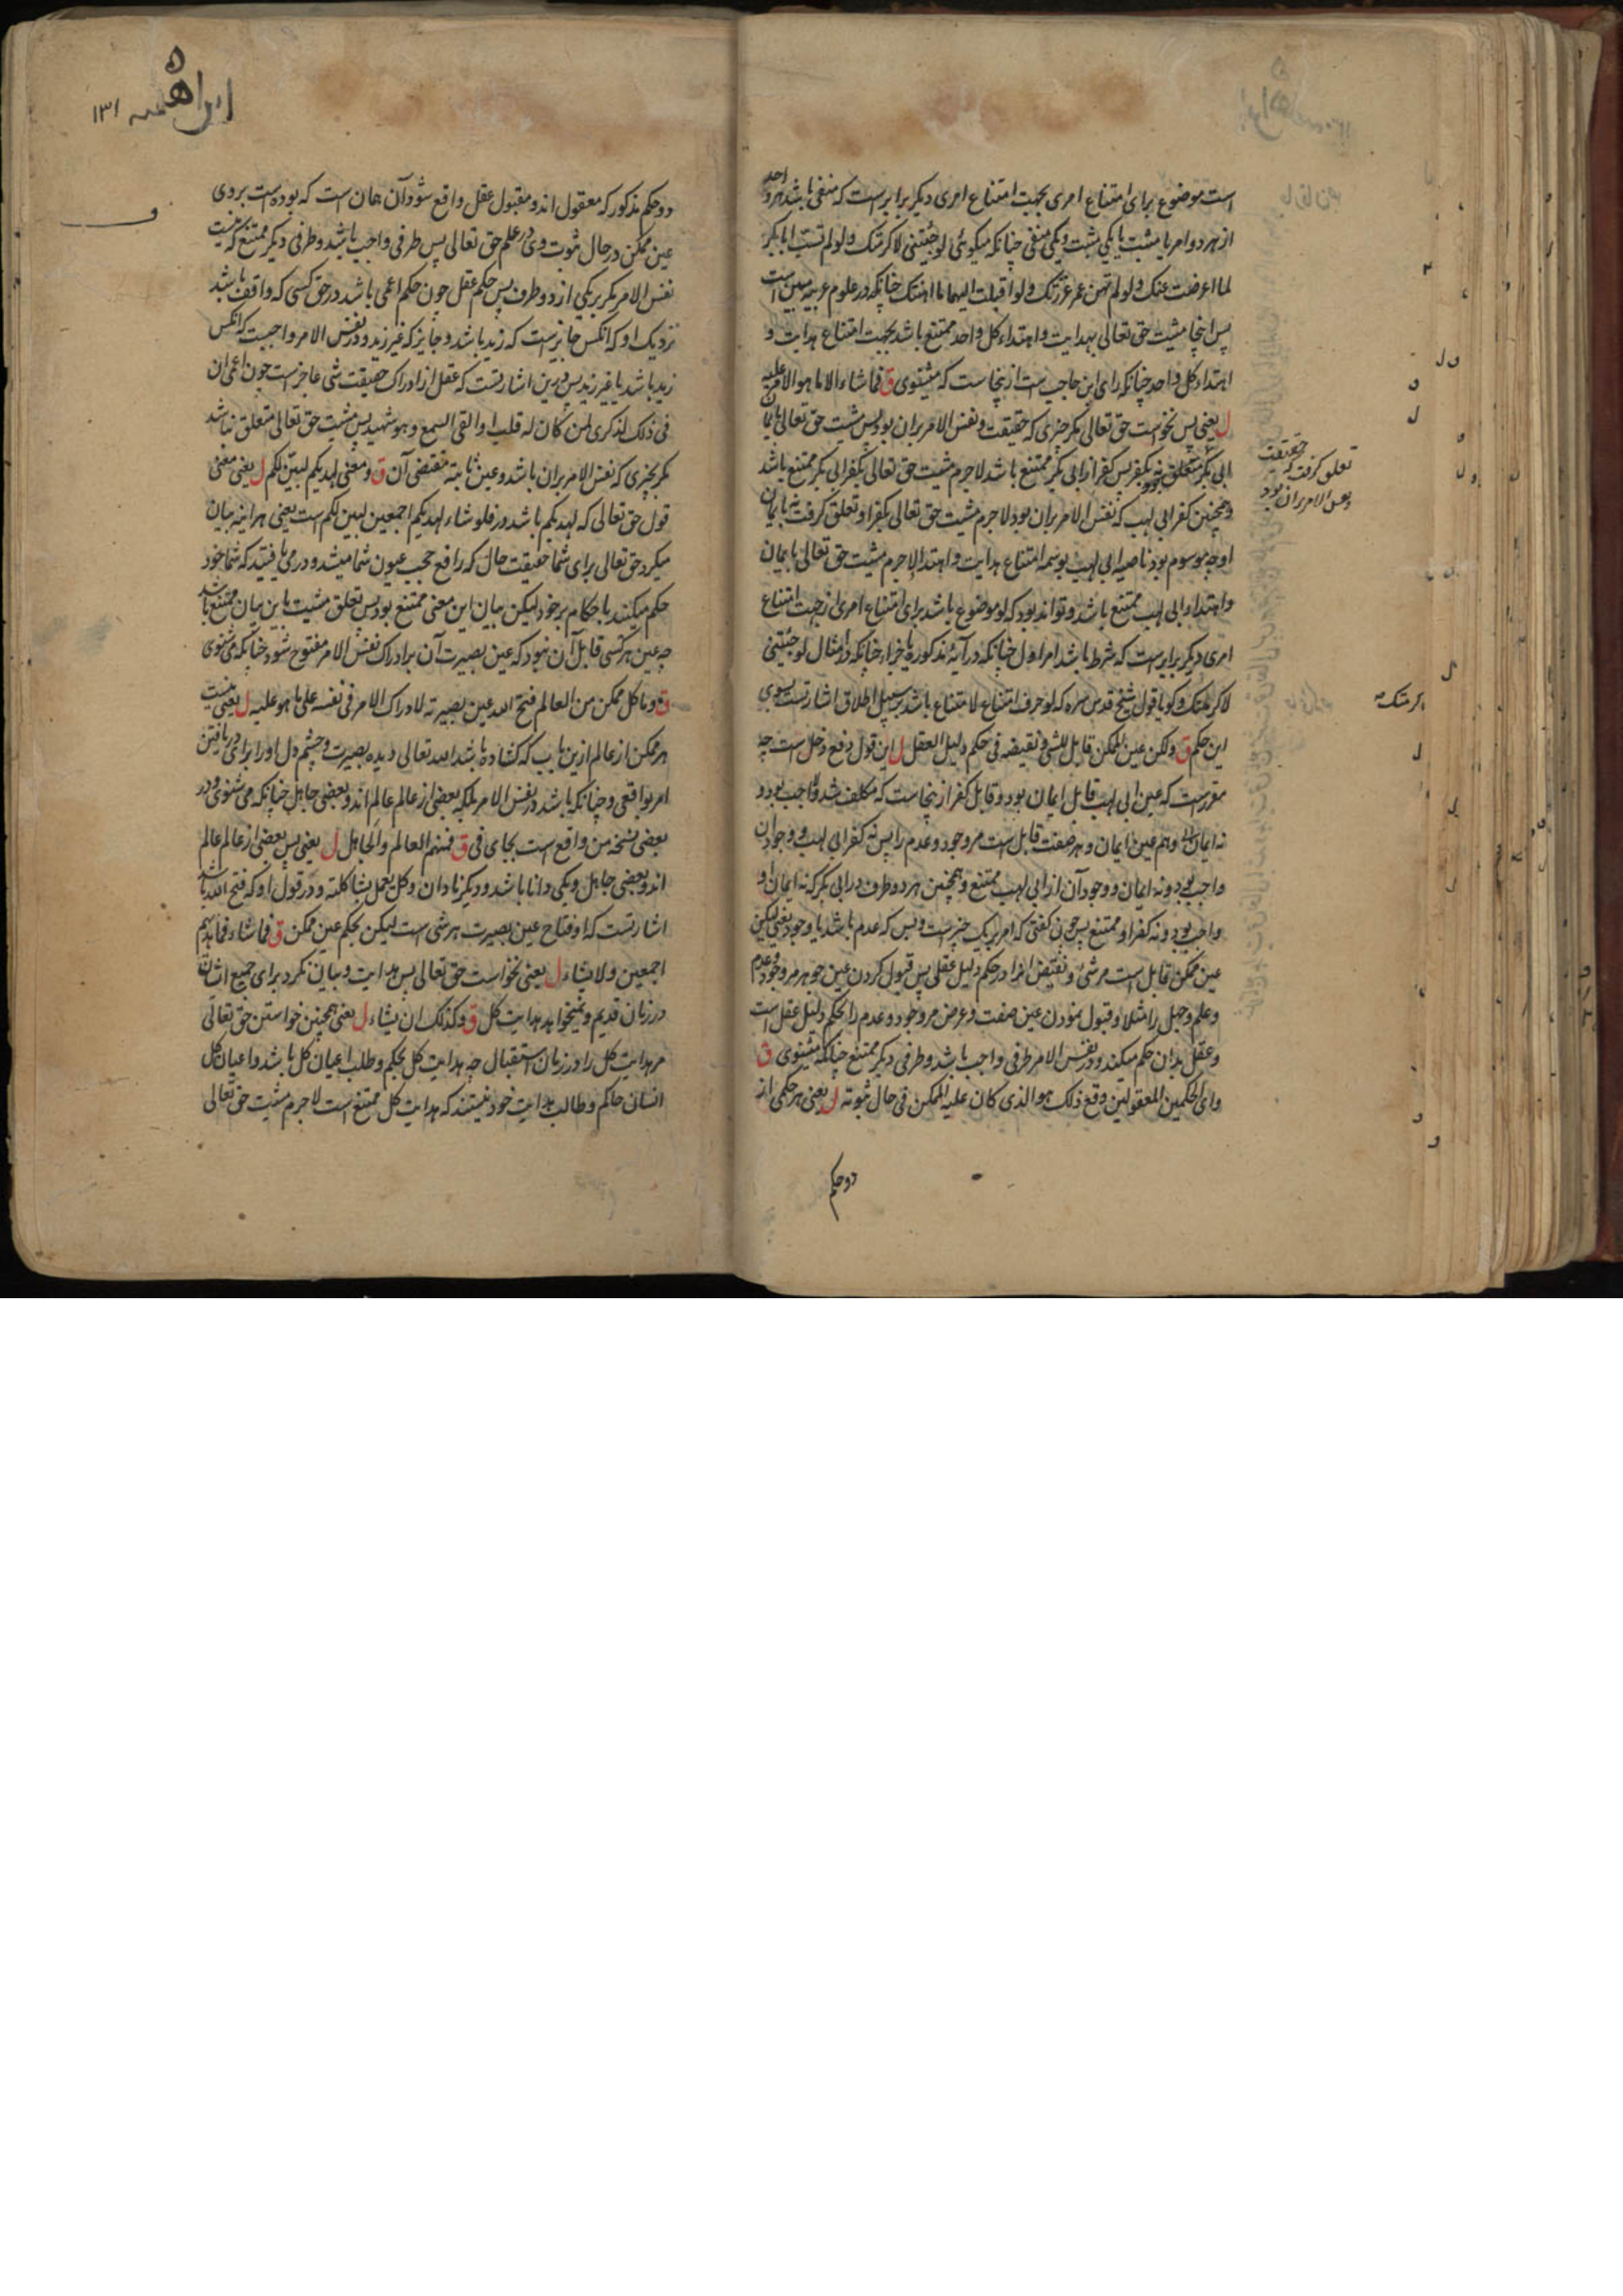 است موضوع برای امتناع امری بجهت امتناع امری دیگر برابرست که منفی باشد هر واحد
از هر دو امر یا مثبت یا یکی مثبت و یکی منفی چنانکه میکوئی لو جئتنی لاکرمتک و لو لم تسب ابابکر
لما اعرضت عنک و لو لم تهن عمر عززتک و لو اقبلت الیهما ما اهنتک چنانکه در علوم عربیه مبین است
پس اینجا مشیت حق تعالی بهدایت و اهتداء کل واحد ممتنع باشد بجهت امتناع هدایت و
اهتداء کل واحد چنانکه رای ابن حاجب است ازینجاست که میشنوی ق فما شاء الا ما هو الامر علیه
ل یعنی پس نخواست حق تعالی مکر چیزی که حقیقت و نفس الامر بران بود پس مشیت حق تعالی بایمان
ابی بکر متعلق بکفر پس کفر از ابی بکر ممتنع باشد لاجرم مشیت حق تعالی بکفر ابی بکر ممتنع باشد
و همچنین کفر ابی لهب که نفس الامر بران بود لاجرم مشیت حق تعالی بکفر او تعلق کرفت نه بایمان
او چه موسوم بود ناصیه ابی لهب بوسمه امتناع هدایت و اهتدا لاجرم مشیت حق تعالی بایمان
و اهتداء ابی لهب ممتنع باشد و تواند بود که لو موضوع باشد برای امتناع امری از جهت امتناع
امری دیگر برابرست که شرط باشد امر اول چنانکه در آیۀ مذکوره یا جزاء چنانکه در مثال لو جئتنی
لاکرمتک و کویا قول شیخ قدس سره که لو حرف امتناع لامتناع باشد بر سبیل اطلاق اشارتست بسوی
این حکم ق ولکن عین الممکن قابل للشئ و نقیضه فی حکم دلیل العقل ل این قول دفع دخل است چه
مقررست که عین ابی لهب قابل ایمان بود و قابل کفر ازینجاست که مکلف شد
نه ایمان و هم عین ایمان و هر صفت قابل است مر وجود و عدم را پس نه کفر ابی لهب و وجود آن
واجب بود و نه ایمان و وجود آن از ابی لهب ممتنع و همچنین هر دو طرف در ابی بکر که نه ایمان او
واجب بود و نه کفر او ممتنع پس چون کفتی که امر بر یک چیزست و بس که عدم باشد یا وجود یعنی لیکن
عین ممکن قابل است مر شئ و نقیض او را در حکم دلیل عقلی پس قبول کردن عین جوهر مر وجود و عدم
و علم و جهل را مثلا و قبول نمودن عین صفت و عرض مر وجود و عدم را بحکم دلیل عقل است
و عقل بدان حکم میکند و در نفس الامر طرفی واجب باشد و طرفی دیگر ممتنع چنانکه میشنوی ق
و ای الحکمین المعقولین وقع ذلک هو الذی کان علیه الممکن فی حال ثبوته ل یعنی هر حکمی از
دو حکم
تعلق کرفت که حقیقت
و نفس الامر بران بود
اکرمتک
ابراهیمیه ۱۳۱
دو حکم مذکور که معقول اند و مقبول عقل واقع شود آن همان است که بوده است بر وی
عین ممکن در حال ثبوت وی در علم حق تعالی پس طرفی واجب باشد و طرفی دیگر ممتنع که نیست
نفس الامر مکر بر یکی از دو طرف پس حکم عقل چون حکم اعمی باشد در حق کسی که واقف باشد
نزدیک او که آنکس جایزست که زید باشد و جایز که غیر زید و در نفس الامر واجبست که آنکس
زید باشد یا غیر زید پس درین اشارتست که عقل از ادراک حقیقت شی عاجزست چون اعمی ان
فی ذلک لذکری لمن کان له قلب او القی السمع و هو شهید پس مشیت حق تعالی متعلق نباشد
مکر بچیزی که نفس الامر بران باشد و عین ثابته مقتضی آن ق و معنی لهدیکم لبین لکم ل یعنی معنی
قول حق تعالی که لهدیکم باشد در فلو شاء لهدیکم اجمعین لبین لکم است یعنی هر اینه بیان
میکرد حق تعالی برای شما حقیقت حال که رافع حجب عیون شما میشد و در می یافتید که شما خود
حکم میکنید باحکام بر خود لیکن بیان این معنی ممتنع بود پس تعلق مشیت باین بیان ممتنع باشد
چه عین هر کسی قابل آن نبود که عین بصیرت آن برادراک نفس الامر مفتوح شود چنانکه می شنوی
ق و ما کل ممکن من العالم فتح الله عین بصیرته لادراک الامر فی نفسه علی ما هو علیه ل یعنی نیست
هر ممکن از عالم ازین باب که کشاده باشد الله تعالی دیده بصیرت و چشم دل او را برای دریافتن
امر واقعی و چنانکه باشد در نفس الامر بلکه بعضی از عالم عالم اند و بعضی جاهل چنانکه می شنوی و در
بعضی نسخه من واقع است بجای فی ق فمنهم العالم و الجاهل ل یعنی پس بعضی از عالم عالم
اند و بعضی جاهل و یکی دانا باشد و دیگر نادان و کل یعمل بشاکلته و در قول او که فتح الله باشد
اشارتست که او فتاح عین بصیرت هر شی است لیکن بحکم عین ممکن ق فما شاء فما هدیهم
اجمعین و لا یشاء ل یعنی نخواست حق تعالی پس هدایت و بیان نکرد برای جمیع انسان
در زمان قدیم و نمیخواهد هدایت کل ق و کذلک ان یشاء ل یعنی همچنین خواستن حق تعالی
مر هدایت کل را در زمان استقبال چه هدایت کل بحکم و طلب اعیان کل باشد و اعیان کل
انسان حاکم و طالب هدایت خود نیستند که هدایت کل ممتنع است لاجرم مشیت حق تعالی